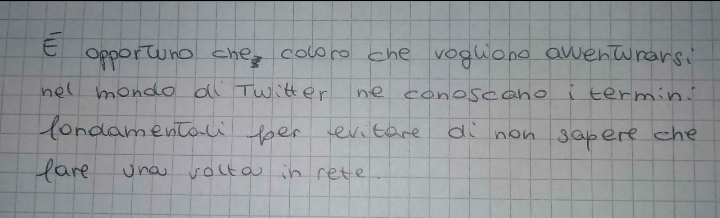 È opportuno che coloro che vogliono avventurarsi
nel mondo di Twitter ne conoscano i termini
fondamentali per evitare di non sapere che
fare una volta in rete.